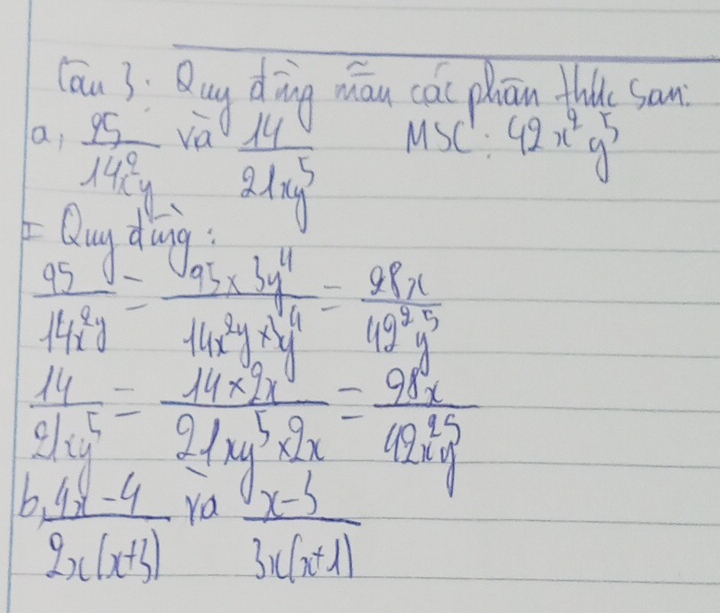 Câu 3: Quy đồng mẫu các phân thức sau:
a, 25/14x²y và 14/21xy⁵ MSC: 42x²y⁵
= Quy đồng:
25/14x²y = 25×3y⁴/14x²y×3y⁴ = 28x/42²y⁵
14/21xy⁵ = 14×2x/21xy⁵×2x = 28x/42x²y⁵
b, 4x-4/2x(x+3) và x-3/3x(x+1)